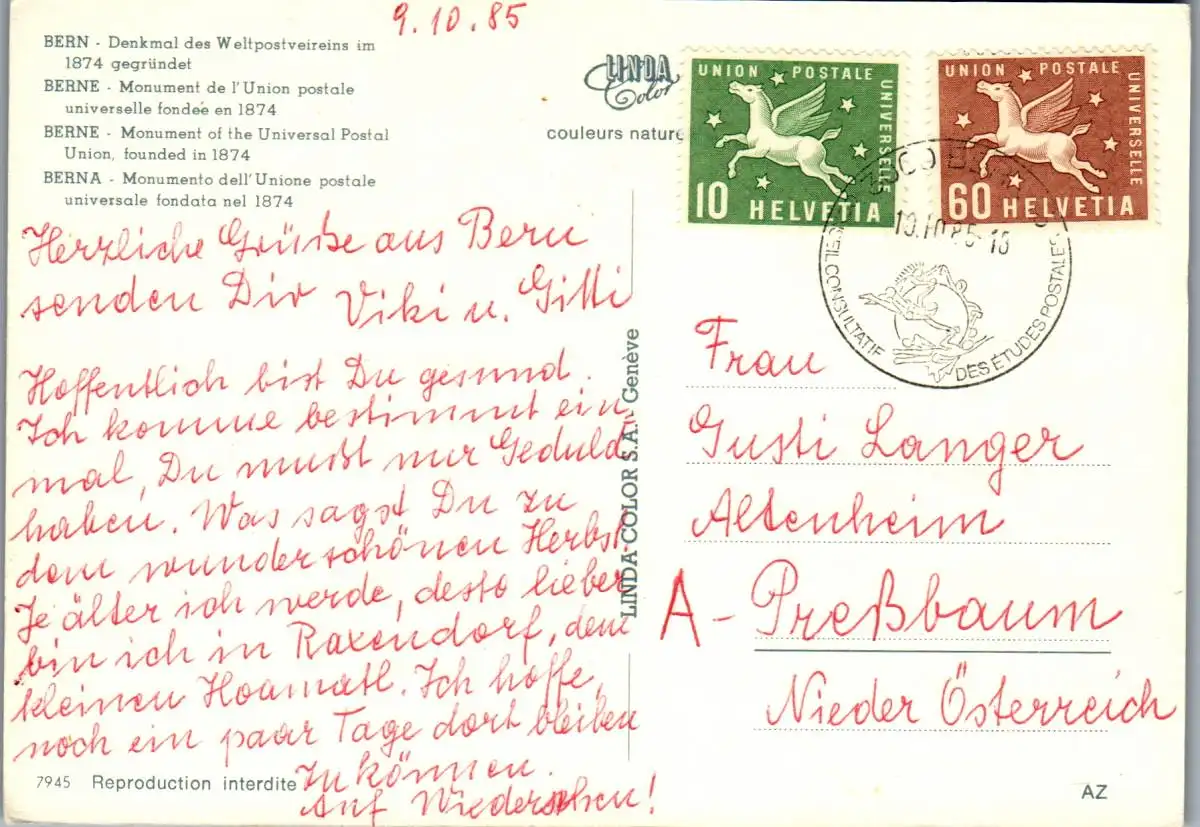 9.10.85
BERN - Denkmal des Weltpostveireins im
1874 gegründet
BERNE - Monument de l'Union postale
universelle fondeé en 1874
BERNE - Monument of the Universal Postal
Union, founded in 1874
BERNA - Monumento dell'Unione postale
universale fondata nel 1874
LINDA
Color
couleurs nature
UNION POSTALE
UNIVERSELLE
10 HELVETIA
UNION POSTALE
UNIVERSELLE
60 HELVETIA
10.10.85-18
CONSULTATIF
DES ÉTUDES POSTALES
Herzliche Grüße aus Bern
senden Dir Viki u. Gitti
Hoffentlich bist Du gesund.
Ich komme bestimmt ein
mal, Du mußt nur Geduld
haben. Was sagst Du zu
dem wunderschönen Herbst.
Je älter ich werde, desto lieber
bin ich in Raxendorf, dem
kleinen Hoamatl. Ich hoffe,
noch ein paar Tage dort bleiben
zu können.
Auf Wiedersehen!
LINDA-COLOR S.A., Genève
Frau
Gusti Langer
Altenheim
A - Preßbaum
Nieder Österreich
7945 Reproduction interdite
AZ